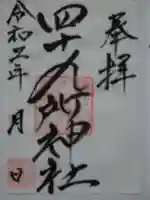 奉拝
四十九所神社
令和六年 月 日